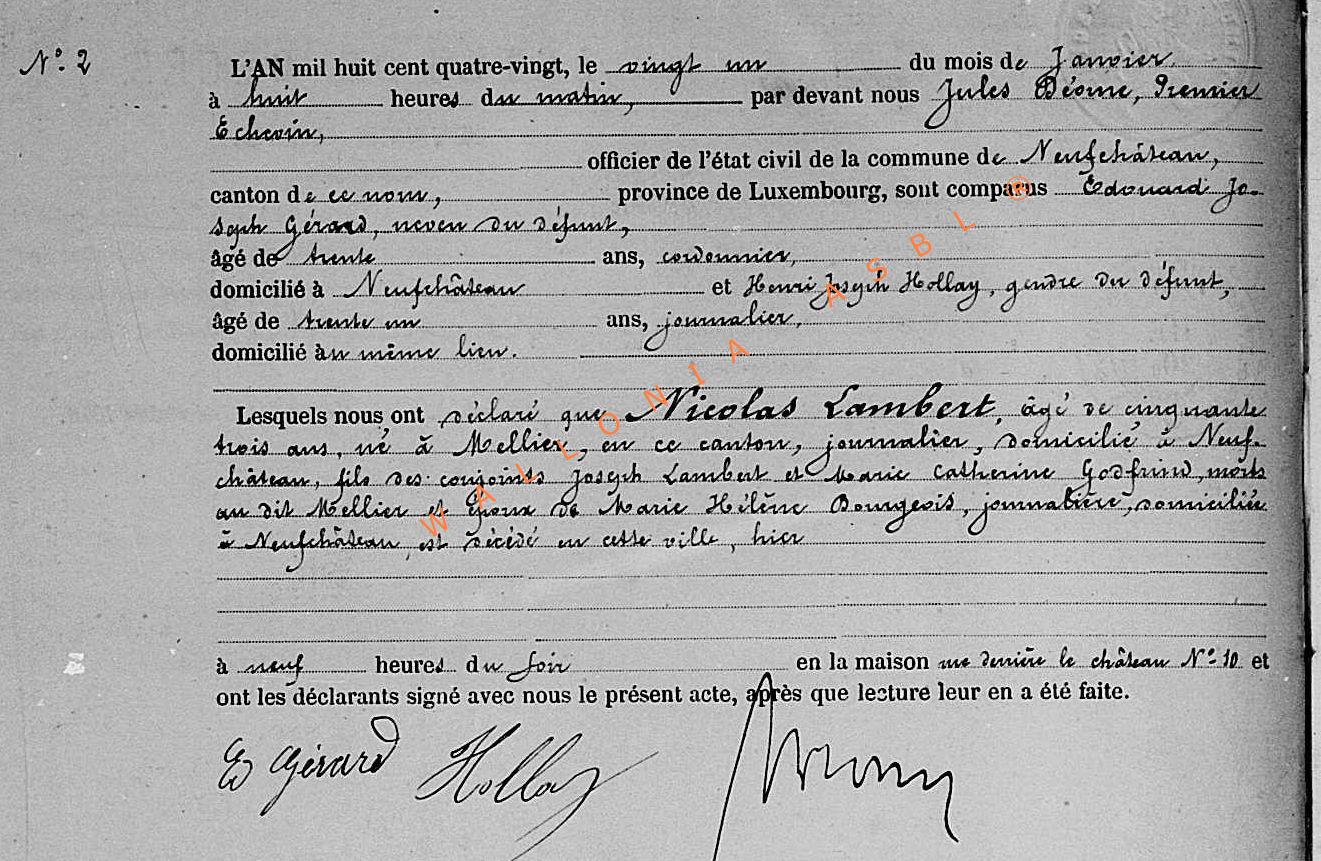 N°. 2
L'AN mil huit cent quatre-vingt, le vingt un du mois de Janvier
à huit heures du matin, par devant nous Jules Déome, Premier
Echevin,
officier de l'état civil de la commune de Neufchâteau,
canton de ce nom, province de Luxembourg, sont comparus Edouard Jo-
seph Gérard, neveu du défunt,
âgé de trente ans, cordonnier,
domicilié à Neufchâteau et Henri Joseph Hollay, gendre du défunt,
âgé de trente un ans, journalier,
domicilié au même lieu.
Lesquels nous ont déclaré que Nicolas Lambert, âgé de cinquante
trois ans, né à Mellier, en ce canton, journalier, domicilié à Neuf-
château, fils des conjoints Joseph Lambert et Marie Catherine Godfrind, morts
au dit Mellier et époux de Marie Hélène Bourgeois, journalière, domiciliée
à Neufchâteau, est décédé en cette ville, hier
à neuf heures du soir en la maison rue derrière le château N°. 10 et
ont les déclarants signé avec nous le présent acte, après que lecture leur en a été faite.
Ed Gérard Hollay
WALLONIA ASBL ®